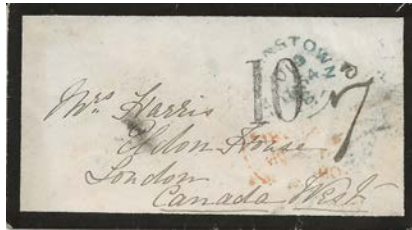 10
7
Mrs Harris
Eldon House
London
Canada West